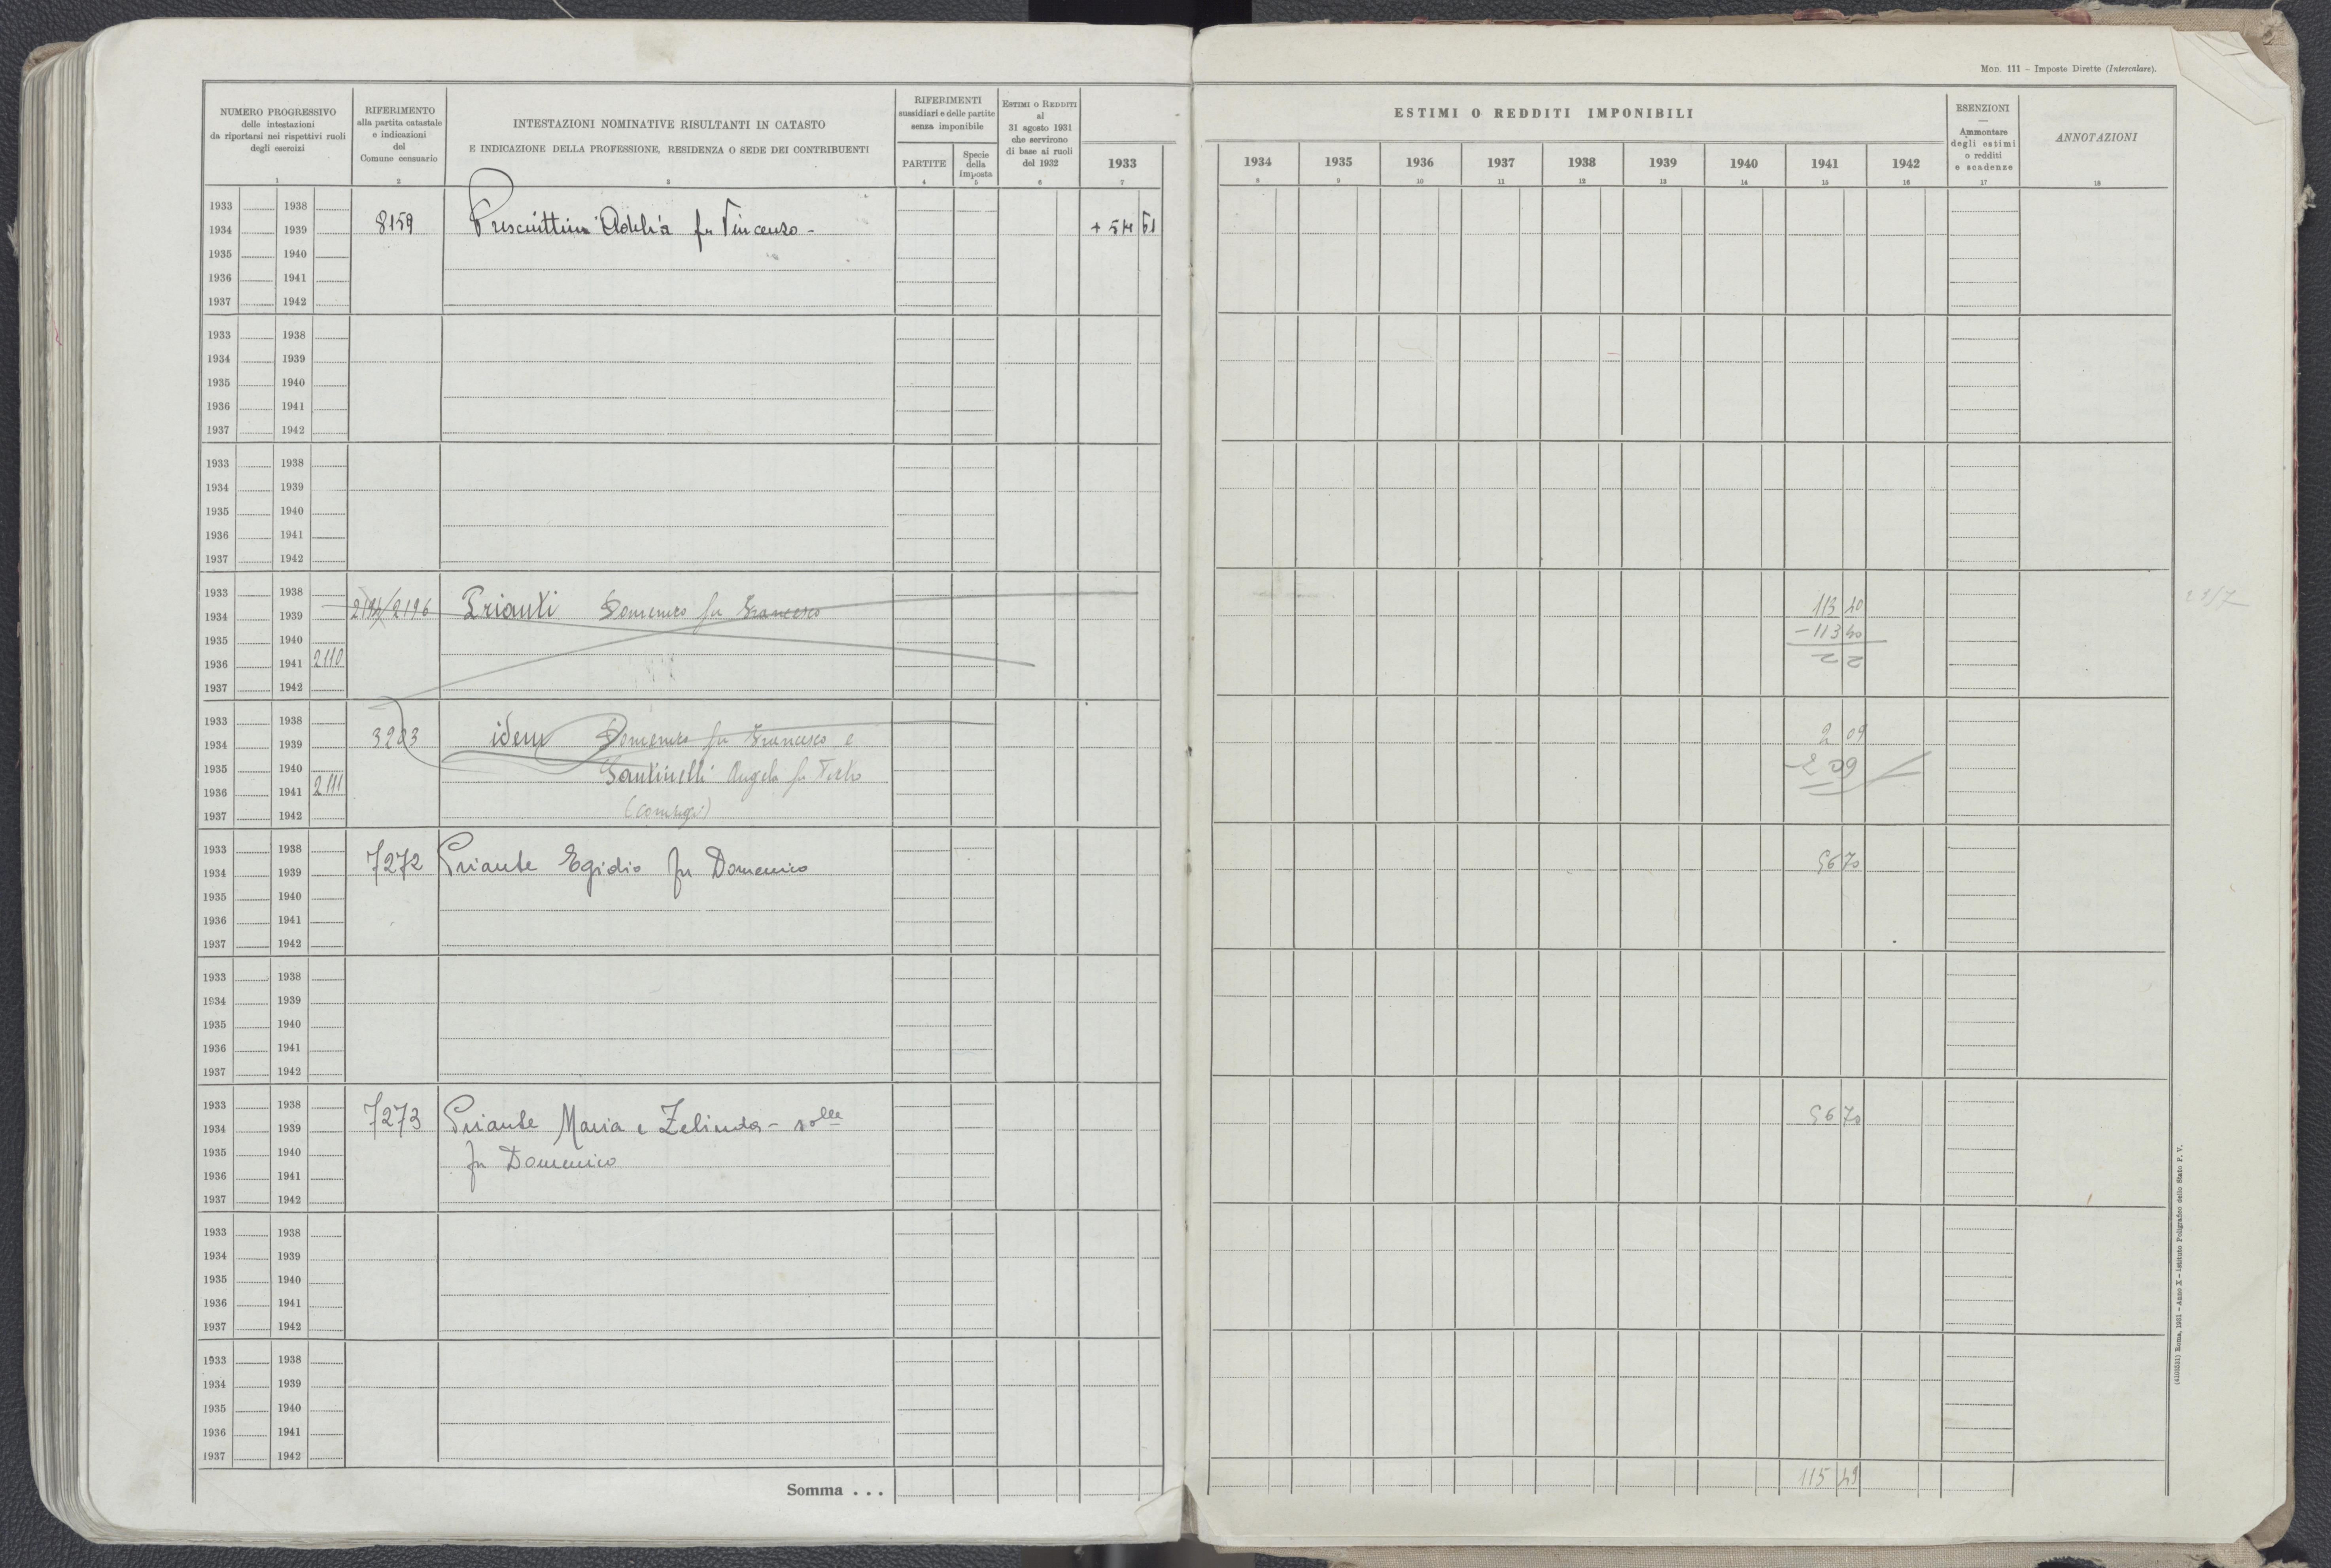 MOD. 111 – Imposte Dirette (Intercalare).
NUMERO PROGRESSIVO
delle intestazioni
da riportarsi nei rispettivi ruoli
degli esercizi
1
RIFERIMENTO
alla partita catastale
e indicazioni
del
Comune censuario
2
INTESTAZIONI NOMINATIVE RISULTANTI IN CATASTO
E INDICAZIONE DELLA PROFESSIONE, RESIDENZA O SEDE DEI CONTRIBUENTI
3
RIFERIMENTI
sussidiari e delle partite
senza imponibile
PARTITE
4
Specie
della
imposta
5
ESTIMI O REDDITI
al
31 agosto 1931
che servirono
di base ai ruoli
del 1932
6
1933
7
ESTIMI O REDDITI IMPONIBILI
1934 1935 1936 1937 1938 1939 1940 1941 1942
8 9 10 11 12 13 14 15 16
ESENZIONI
—
Ammontare
degli estimi
o redditi
e scadenze
17
ANNOTAZIONI
18
1933 1938
1934 1939 8159 Adelia fu Vincenzo -
1935 1940
1936 1941
1937 1942
1933 1938
1934 1939
1935 1940
1936 1941
1937 1942
1933 1938
1934 1939
1935 1940
1936 1941
1937 1942
1933 1938
1934 1939 2196 Prianti Domenico fu Francesco 113 40
1935 1940 -113 40
1936 1941 2110
1937 1942
1933 1938
1934 1939 3203 idem Domenico fu Francesco e 2 09
1935 1940 Santinelli Angela fu -2 09
1936 1941 2111
1937 1942 (coniugi)
1933 1938
1934 1939 7272 Priante Egidio fu Domenico 56 70
1935 1940
1936 1941
1937 1942
1933 1938
1934 1939
1935 1940
1936 1941
1937 1942
1933 1938
1934 1939 7273 Priante Maria e Zelinda - solle 56 70
1935 1940 fu Domenico
1936 1941
1937 1942
1933 1938
1934 1939
1935 1940
1936 1941
1937 1942
1933 1938
1934 1939
1935 1940
1936 1941
1937 1942
Somma . . . 115 49